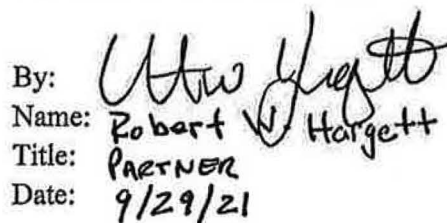 By:
Name: Robert W. Hargett
Title: PARTNER
Date: 9/29/21